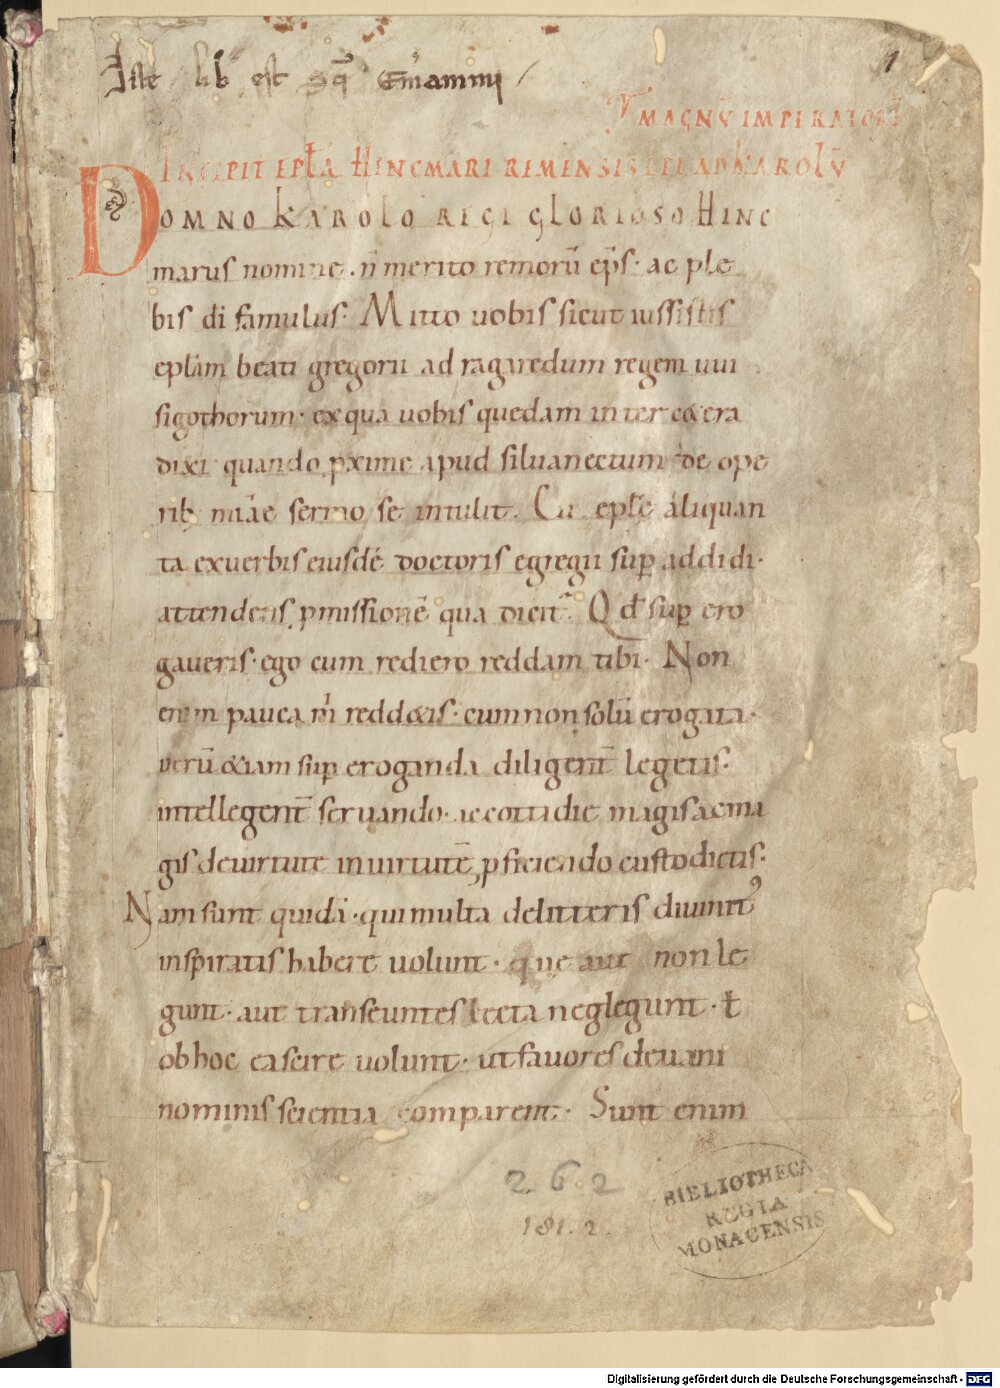 Iste lib est Sc̄i Em̄ammi
1
MAGNŪ IMPERATORĒ
INCIPIT EPLA HINCMARI REMENSIS EPI AD KAROLŪ
DOMNO KAROLO REGI GLORIOSO HINC
marus nomine · n̄ merito remorū ep̄s · ac ple
bis dī famulus · Mitto uobis sicut iussistis
epłam beati gregorii ad ragaredum regem uui
sigothorum · ex qua uobis quedam inter cętera
dixi quando p̱xime apud siluanectum de ope
rib; mīae sermo se intulit. Cui eplę aliquan
ta exuerbis eiusdē doctoris egregii sup̱ addidi ·
attendens p̱missionē qua dicit̄. Qđ sup̱ ero
gaueris · ego cum rediero reddam tibi · Non
enim pauca m̄ reddetis · cum non solū erogata ·
uerū etiam sup̱ eroganda diligent̄ legetis ·
intellegent̄ seruando · ac cottidie magis ac ma
gis de uirtute in uirtutē p̱ficiendo custodietis ·
Nam sunt quidā · qui multa de litteris diuinit᾽
inspiratis habere uolunt · que aut non le
gunt · aut transeuntes lecta neglegunt · ł
ob hoc ea scire uolunt · ut fauores de uani
nominis scientia comparent · Sunt enim
262
181.2.
BIBLIOTHECA
REGIA
MONACENSIS
Digitalisierung gefördert durch die Deutsche Forschungsgemeinschaft - DFG